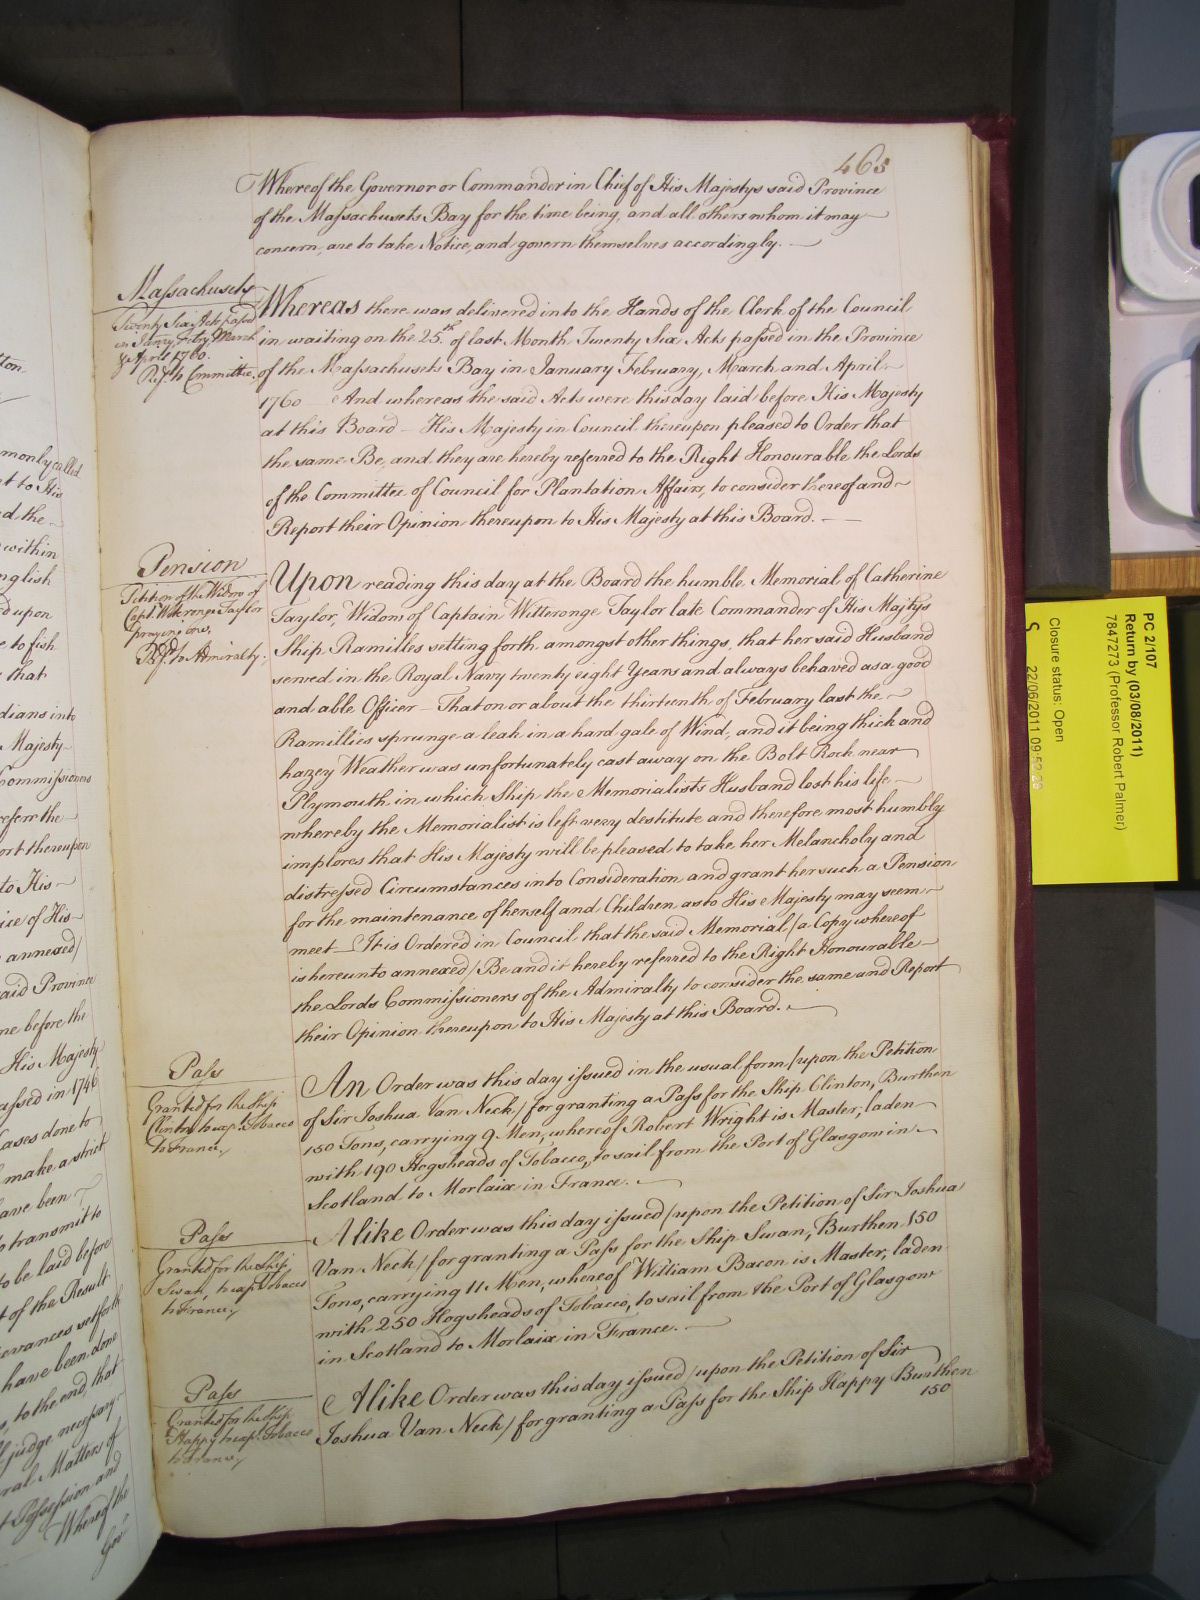 465
Whereof the Governor or Commander in Chief of His Majestys said Province
of the Massachusets Bay for the time being, and all others whom it may
concern, are to take Notice, and govern themselves accordingly.
Massachusets
Twenty Six Acts passd
in Janry, Febry March
& April 1760.
Refd. to Committee.
Whereas there was delivered into the Hands of the Clerk of the Council
in waiting on the 25th. of last Month Twenty Six Acts passed in the Province
of the Massachusets Bay in January February, March and April
1760 And whereas the said Acts were this day laid before His Majesty
at this Board — His Majesty in Council thereupon pleased to Order that
the same Be, and they are hereby referred to the Right Honourable the Lords
of the Committee of Council for Plantation Affairs, to consider thereof and
Report their Opinion thereupon to His Majesty at this Board.
Pension
Petition of the Widow of
Capt. Witteronge Taylor
praying one,
Refd. to Admiralty.
Upon reading this day at the Board the humble Memorial of Catherine
Taylor, Widow of Captain Witteronge Taylor late Commander of His Majtys
Ship Ramilles setting forth amongst other things, that her said Husband
served in the Royal Navy twenty eight Years and always behaved as a good
and able Officer — That on or about the thirteenth of February last the
Ramillies sprunge a leak in a hard gale of Wind, and it being thick and
hazey Weather was unfortunately cast away on the Bolt Rock near
Plymouth, in which Ship the Memorialists Husband lost his life
whereby the Memorialist is left very destitute and therefore most humbly
implores that His Majesty will be pleased to take her Melancholy and
distressed Circumstances into Consideration and grant her such a Pension
for the maintenance of herself and Children as to His Majesty may seem
meet — It is Ordered in Council that the said Memorial / a Copy whereof
is hereunto annexed / Be and it hereby referred to the Right Honourable
the Lords Commissioners of the Admiralty to consider the same and Report
their Opinion thereupon to His Majesty at this Board.
Pass
Granted for the Ship
Clinton, to cap. Tobacco
to France,
An Order was this day issued in the usual form / upon the Petition
of Sir Joshua Van Neck / for granting a Pass for the Ship Clinton, Burthen
150 Tons, carrying 9 Men, whereof Robert Wright is Master, laden
with 190 Hogsheads of Tobacco, to sail from the Port of Glasgow in
Scotland to Morlaix in France.
Pass
Granted for the Ship
Swan, to cap. Tobacco
to France,
A like Order was this day issued / upon the Petition of Sir Joshua
Van Neck / for granting a Pass for the Ship Swan, Burthen 150
Tons, carrying 11 Men, whereof William Bacon is Master, laden
with 250 Hogsheads of Tobacco, to sail from the Port of Glasgow
in Scotland to Morlaix in France.
Pass
Granted for the Ship
Happy to cap. Tobacco
to France,
A like Order was this day issued / upon the Petition of Sir
Joshua Van Neck / for granting a Pass for the Ship Happy Burthen
150
monly called
et to His
d the
within
nglish
d upon
e to fish
that
dians into
Majesty
Commissioners
referr the
ort thereupon
to His
ice of His
annexed /
aid Province
me before the
His Majesty
assed in 1746
Cases done to
make a strict
have been
to transmit to
to be laid before
t of the Result
evances setforth
have been done
to the end, that
judge necessary
ral Matters of
Possession and
Whereof the
Govr
PC 2/107
Return by (03/08/2011)
7847273 (Professor Robert Palmer)
Closure status: Open
S 22/06/2011 09:52:26